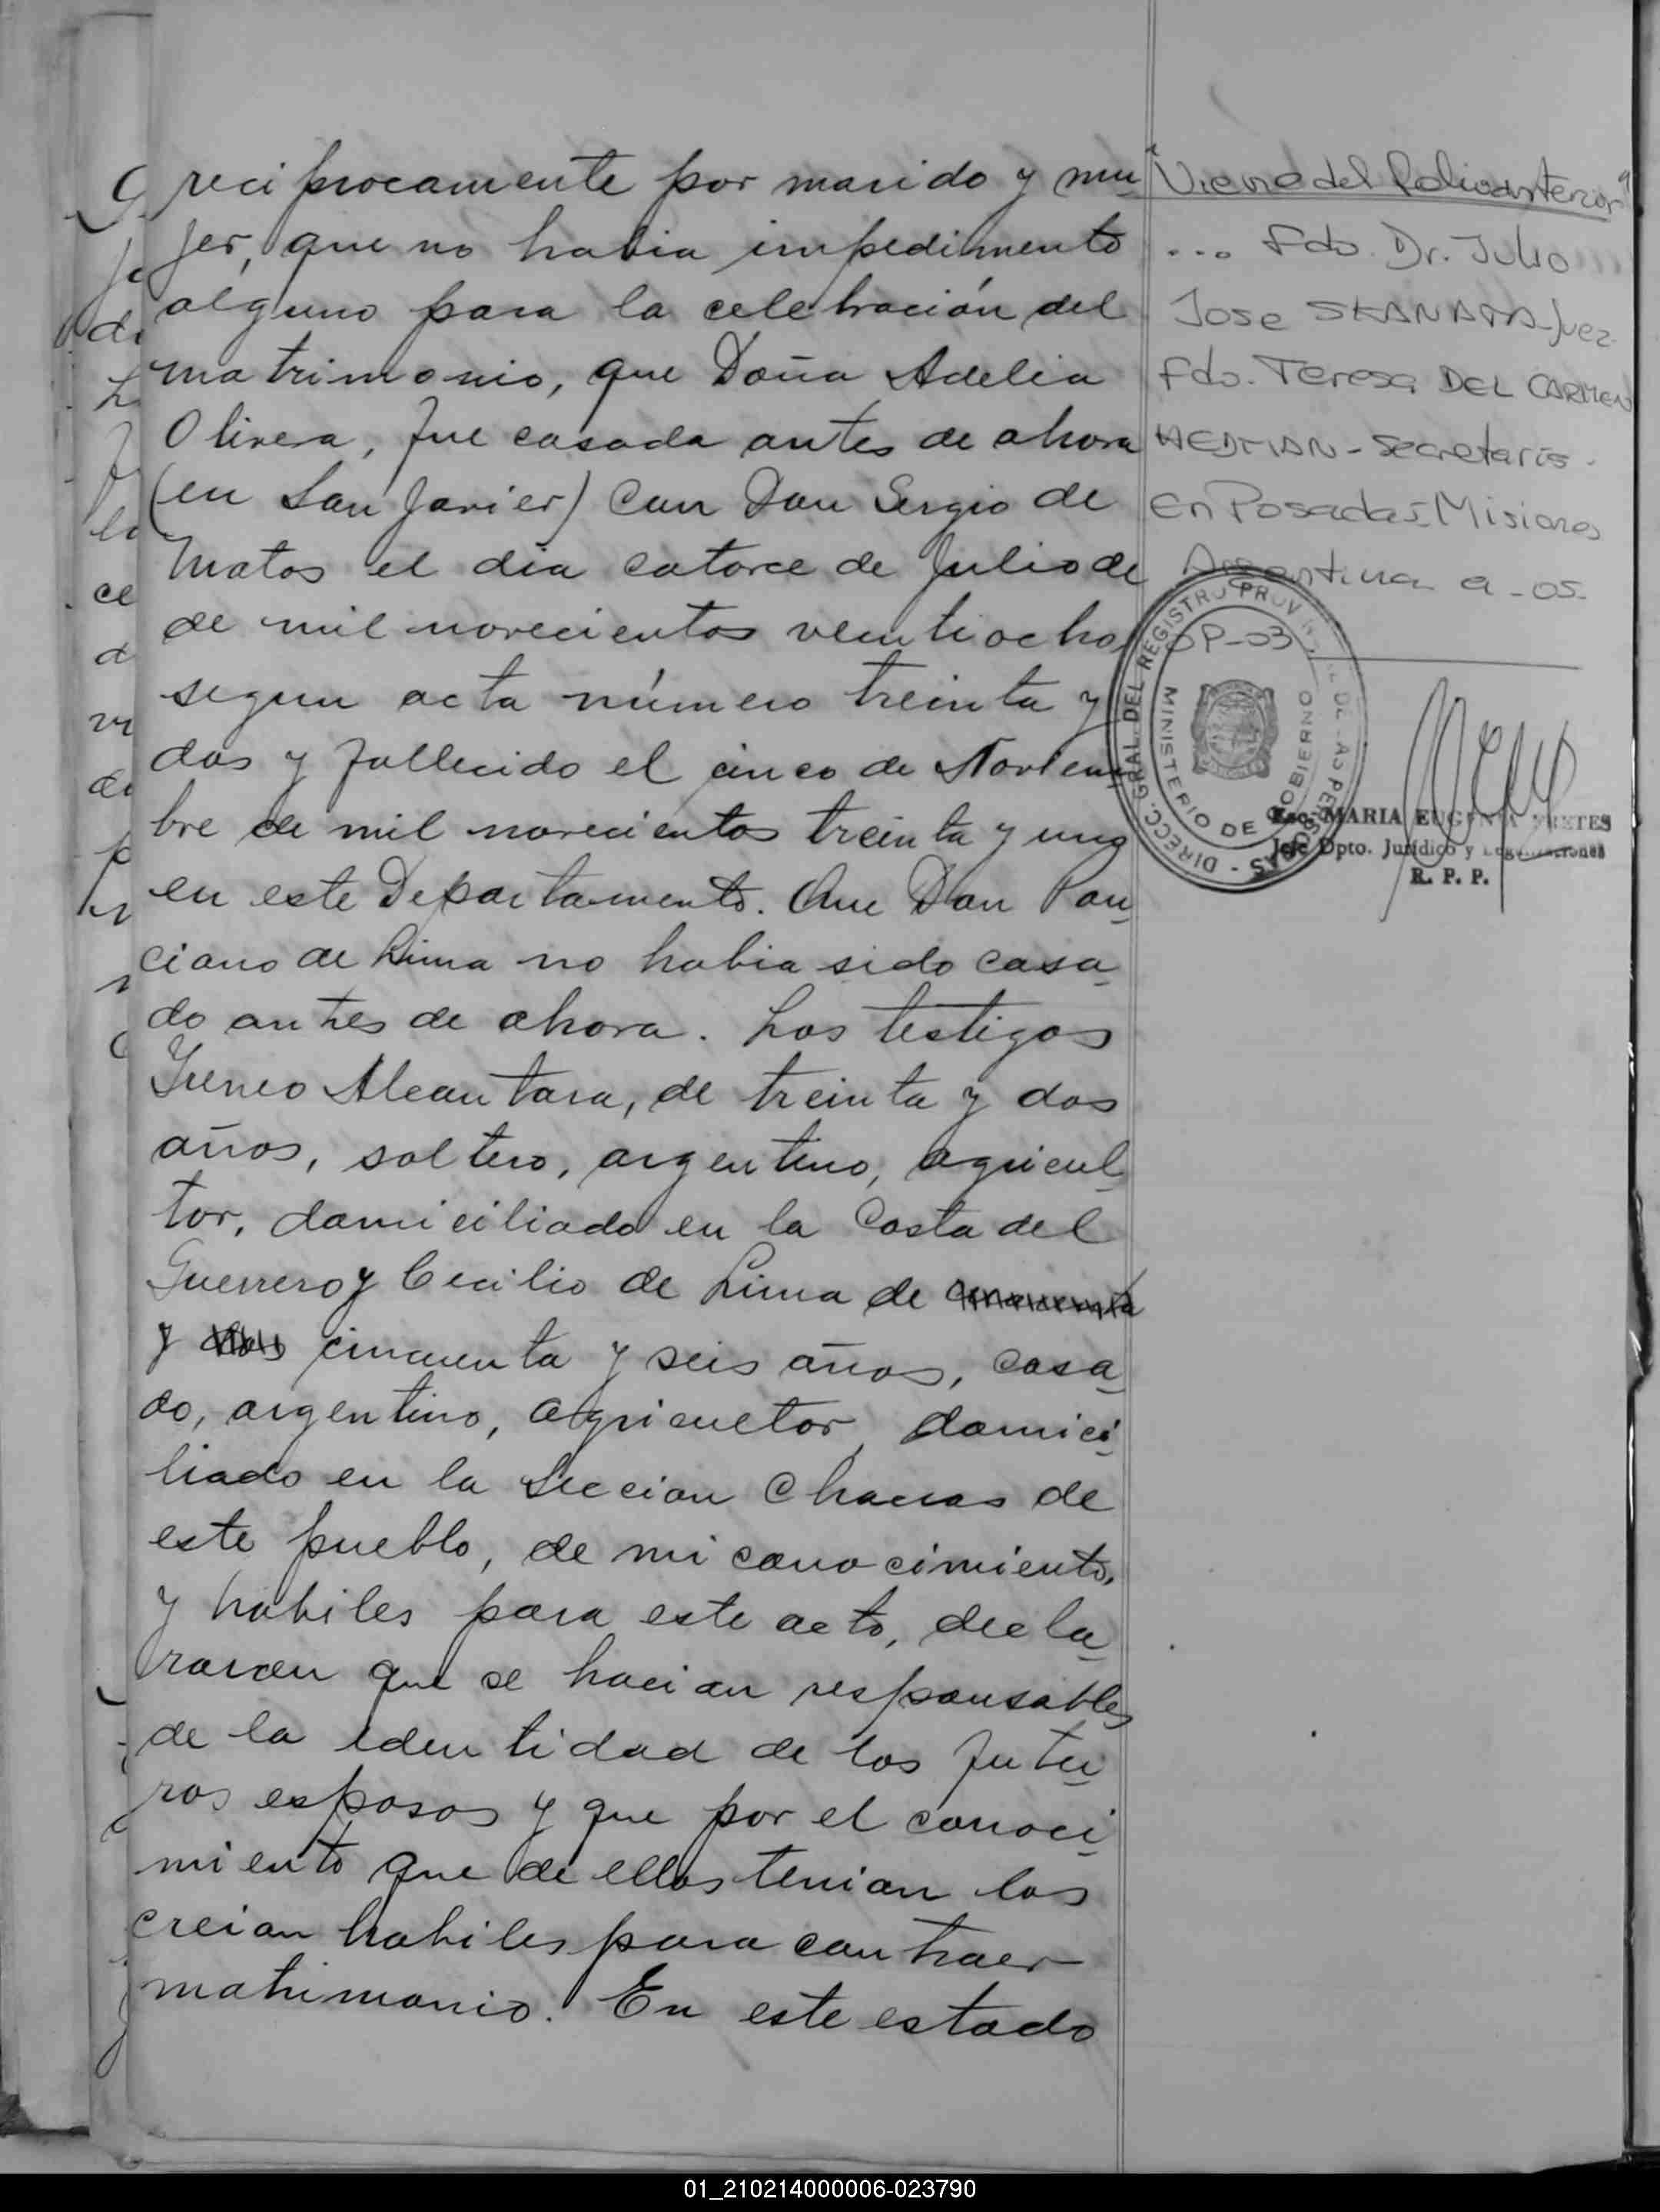 reciprocamente por marido y mu
jer, que no habia impedimento
alguno para la celebración del
matrimonio, que Doña Adelia
Olivera, fue casada antes de ahora
(en San Javier) con Don Sergio de
Matos el dia catorce de Julio de
de mil novecientos veintiocho
segun acta número treinta y
dos y fallecido el cinco de Noviem
bre de mil novecientos treinta y uno
en este Departamento. Que Don Pon
ciano de Lima no habia sido casa
do antes de ahora. Los testigos
Ireneo Alcantara, de treinta y dos
años, soltero, argentino, agricul
tor, domiciliado en la Costa del
Guerrero y Cecilio de Lima de cincuenta
y dos cincuenta y seis años, casa
do, argentino, agricultor, domici
liado en la Seccion Chacras de
este pueblo, de mi conocimiento,
y habiles para este acto, decla
raron que se hacian responsables
de la identidad de los futu
ros esposos y que por el conoci
miento que de ellos tenian los
creian habiles para contraer
matrimonio. En este estado
"Viene del folio anterior"
... Fdo. Dr. Julio
Jose Juez
Fdo. Teresa DEL CARMEN
Secretaria.
En Posadas, Misiones
Argentina a-05-
03
DIRECC. GRAL. DEL REGISTRO PROV DE LAS PERSONAS
MINISTERIO DE GOBIERNO
Esc. MARIA EUGENIA
Jefe Dpto. Jurídico y Legalizaciones
R. P. P.
01_210214000006-023790